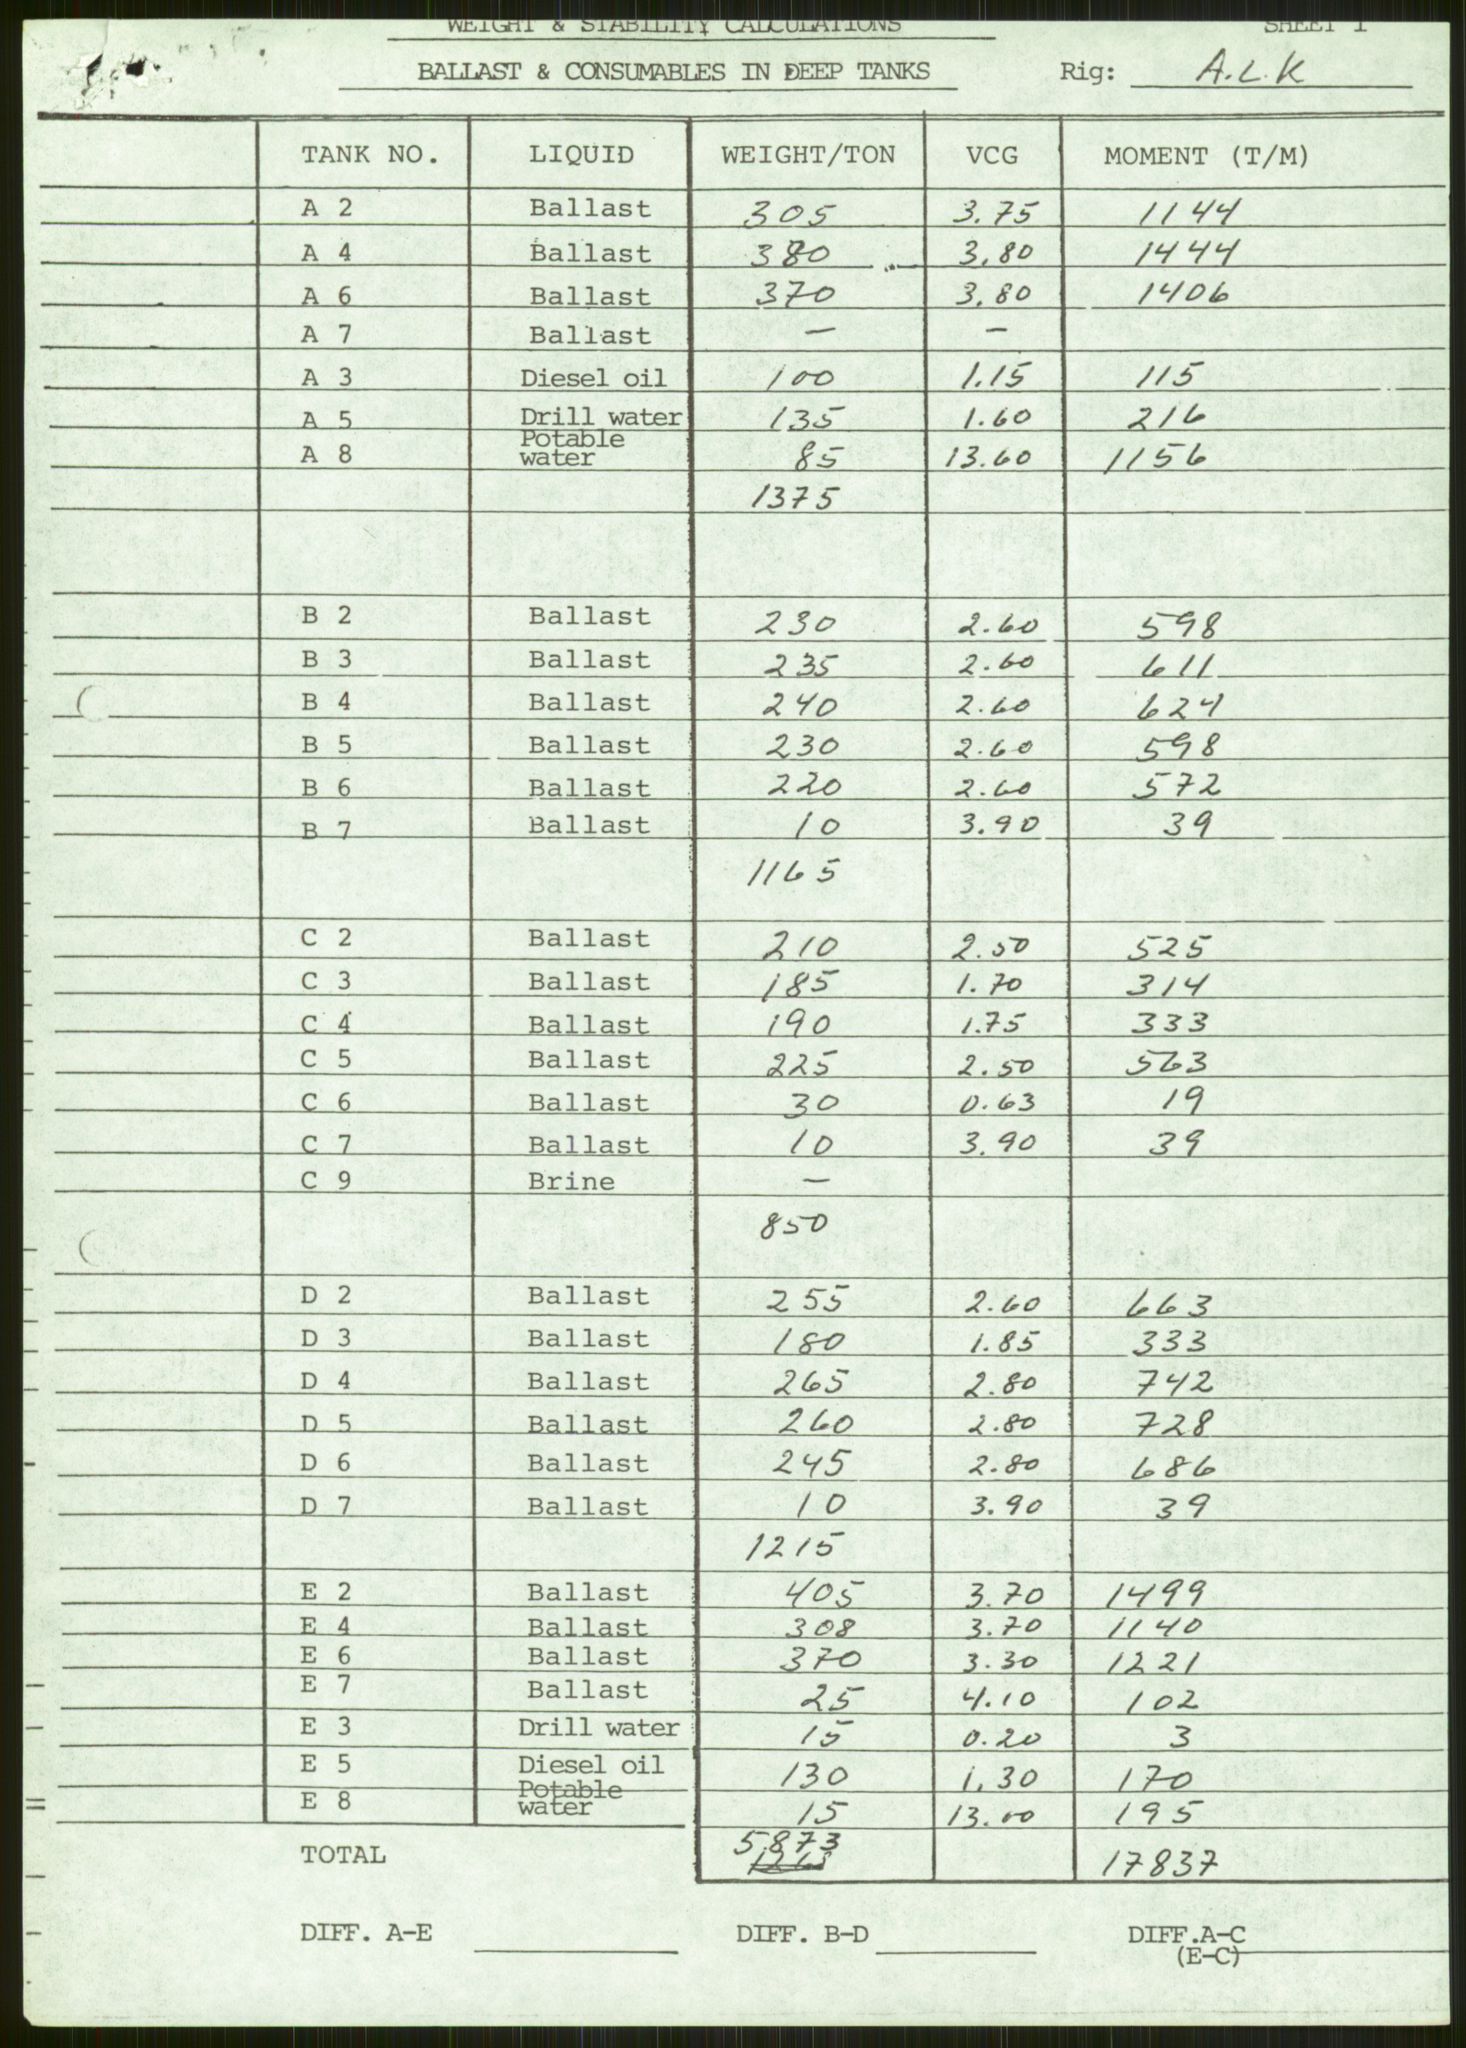 WEIGHT & STABILITY CALCULATIONS SHEET 1
BALLAST & CONSUMABLES IN DEEP TANKS Rig: A.L.K
TANK NO. LIQUID WEIGHT/TON VCG MOMENT (T/M)
A 2 Ballast 305 3.75 1144
A 4 Ballast 380 3.80 1444
A 6 Ballast 370 3.80 1406
A 7 Ballast — —
A 3 Diesel oil 100 1.15 115
A 5 Drill water 135 1.60 216
A 8 Potable water 85 13.60 1156
1375
B 2 Ballast 230 2.60 598
B 3 Ballast 235 2.60 611
B 4 Ballast 240 2.60 624
B 5 Ballast 230 2.60 598
B 6 Ballast 220 2.60 572
B 7 Ballast 10 3.90 39
1165
C 2 Ballast 210 2.50 525
C 3 Ballast 185 1.70 314
C 4 Ballast 190 1.75 333
C 5 Ballast 225 2.50 563
C 6 Ballast 30 0.63 19
C 7 Ballast 10 3.90 39
C 9 Brine —
850
D 2 Ballast 255 2.60 663
D 3 Ballast 180 1.85 333
D 4 Ballast 265 2.80 742
D 5 Ballast 260 2.80 728
D 6 Ballast 245 2.80 686
D 7 Ballast 10 3.90 39
1215
E 2 Ballast 405 3.70 1499
E 4 Ballast 308 3.70 1140
E 6 Ballast 370 3.30 1221
E 7 Ballast 25 4.10 102
E 3 Drill water 15 0.20 3
E 5 Diesel oil 130 1.30 170
E 8 Potable water 15 13.00 195
TOTAL 5873 1268 17837
DIFF. A-E DIFF. B-D DIFF.A-C
(E-C)